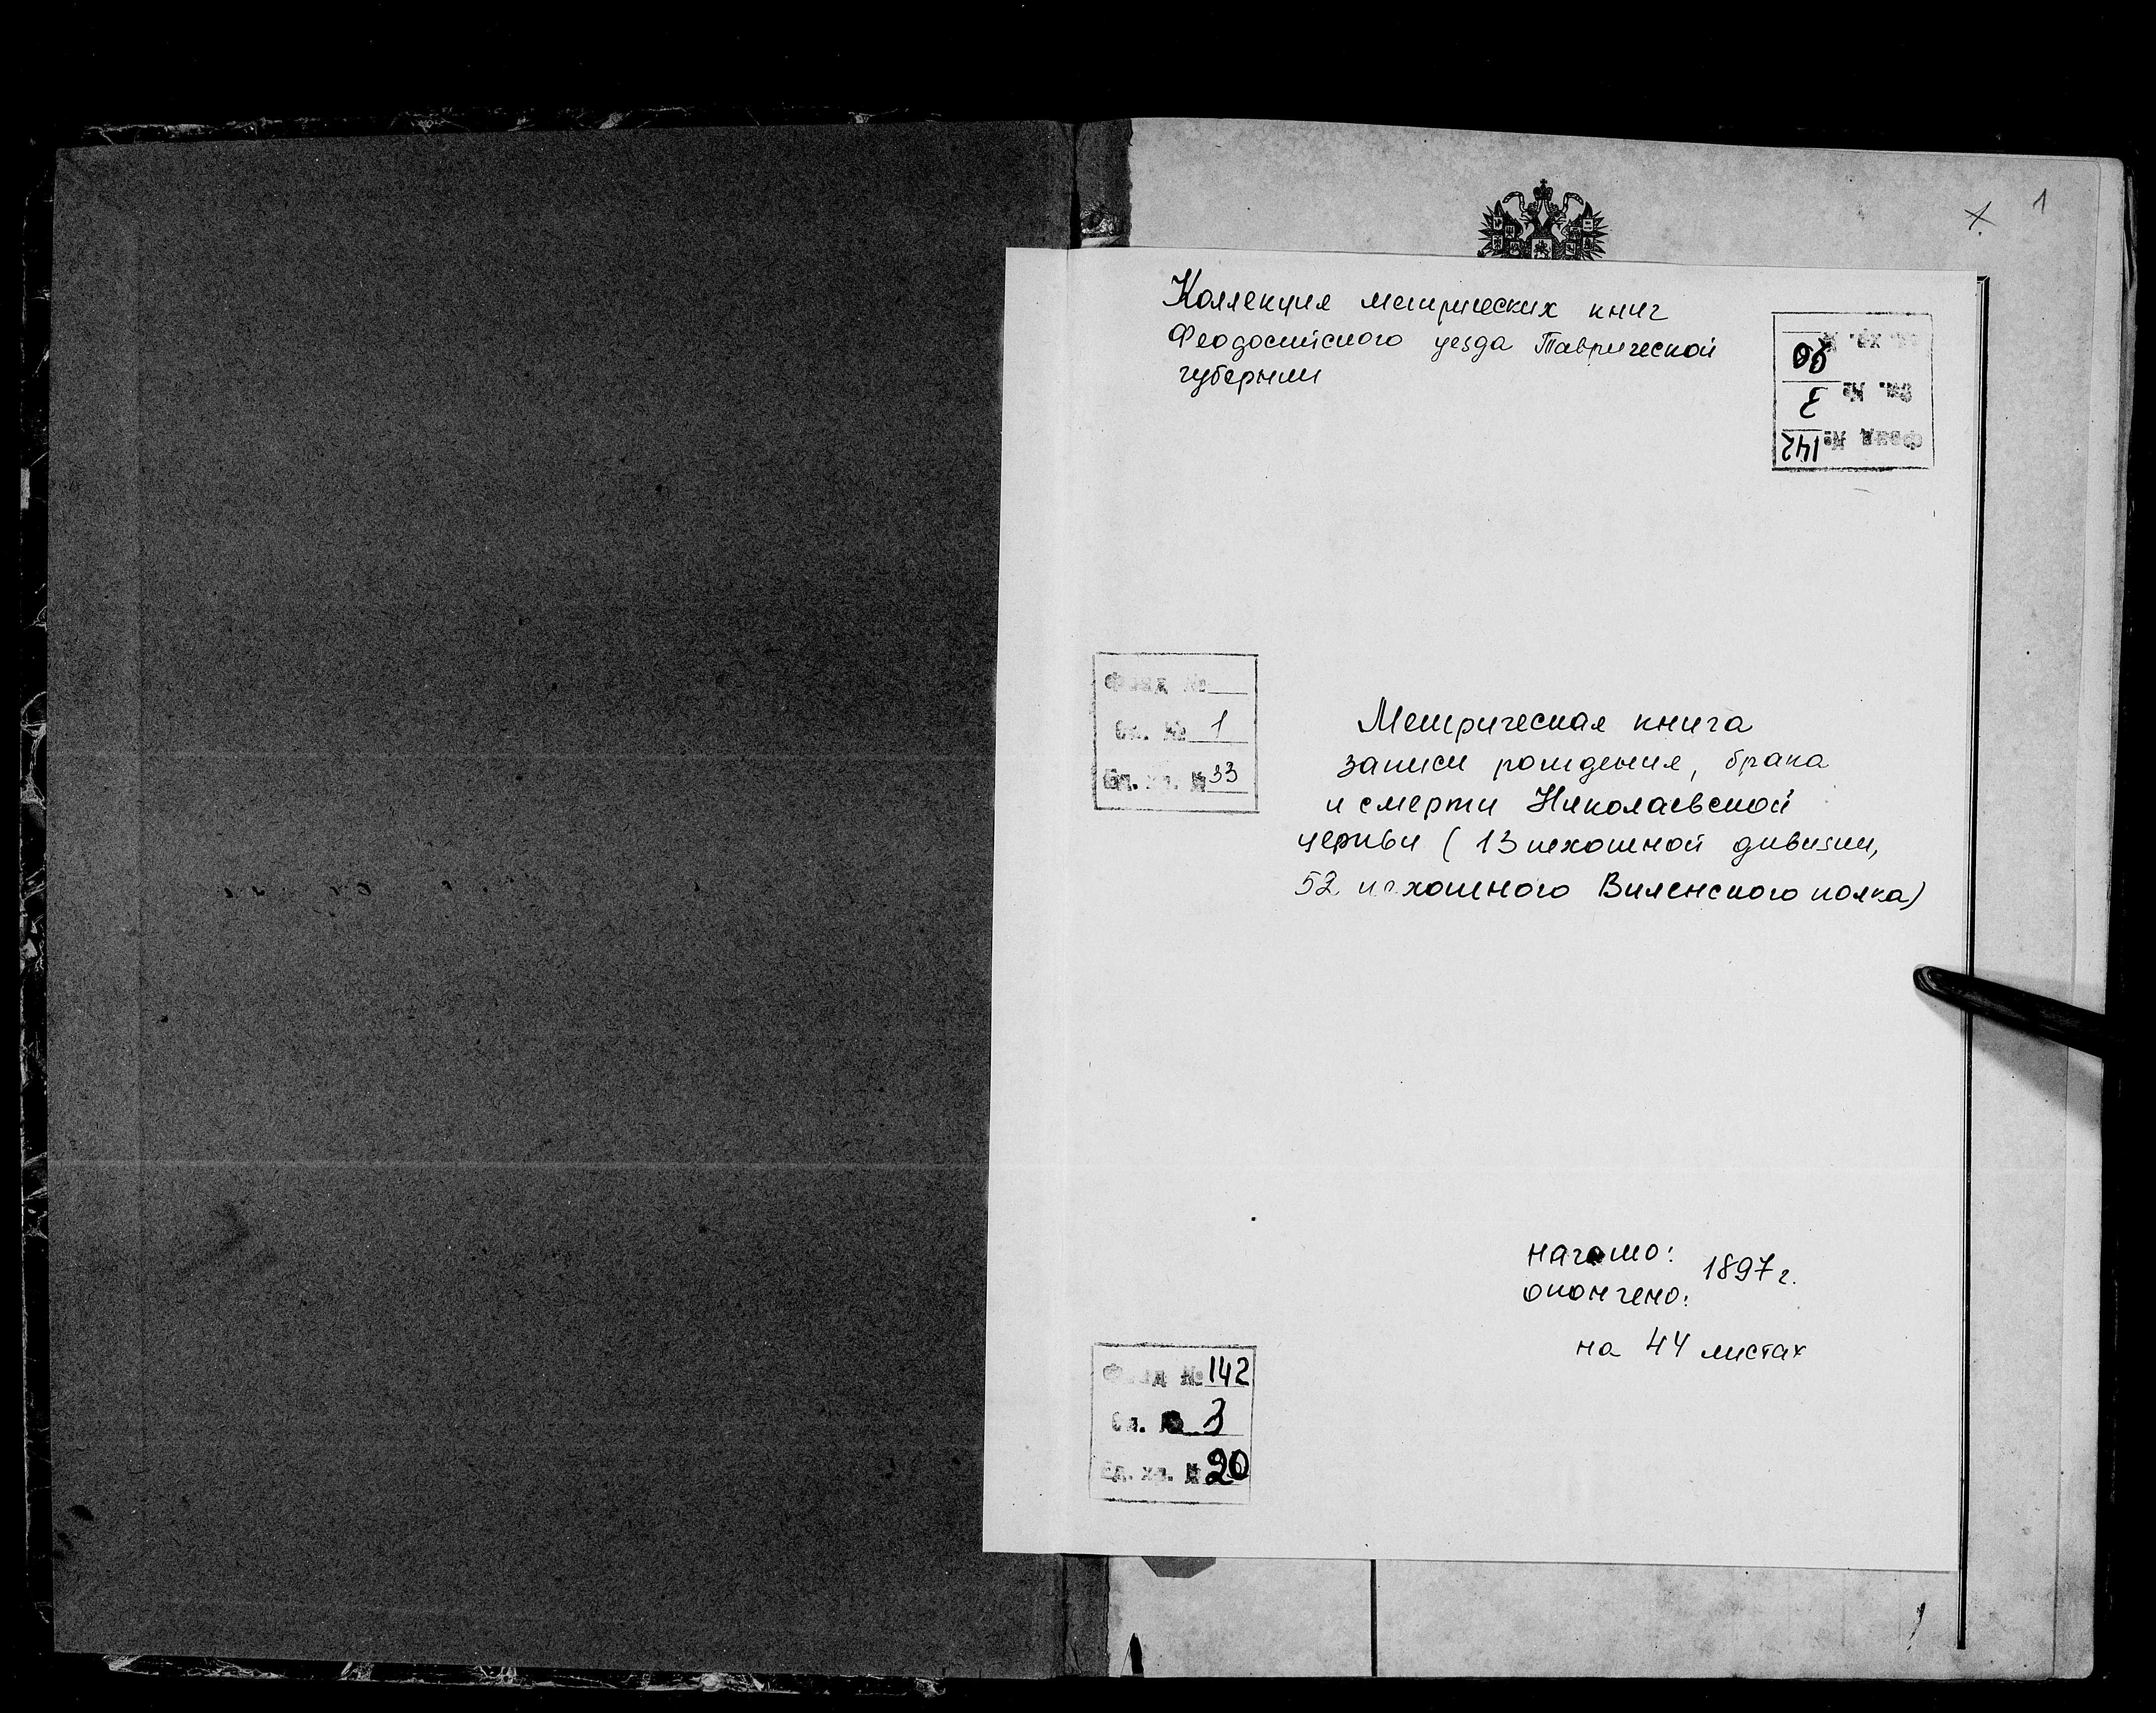 1
Коллекция метрических книг
Феодосийского уезда Таврической
губернии
Ед. хр. № 20
Оп. № 3
Фонд № 142
Фонд №
Оп. № 1
Ед. хр. № 33
Метрическая книга
записи рождения, брака
и смерти Николаевской
церкви (13 пехотной дивизии,
52 пехотного Виленского полка)
начато:
1897 г.
окончено:
на 44 листах
Фонд № 142
Оп. № 3
Ед. хр. № 20